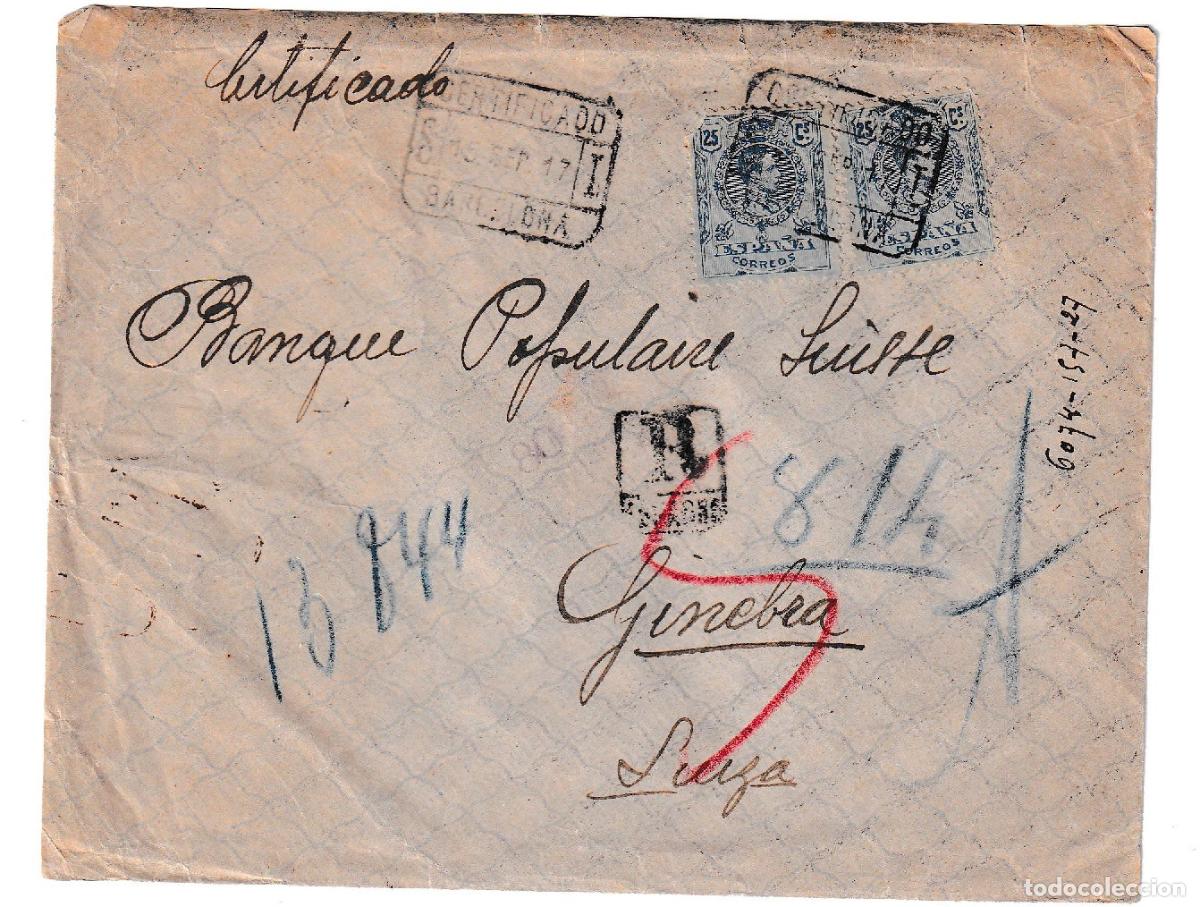 Certificado
CERTIFICADO
SEP 17 I
BARCELONA
25 Cs
ESPAÑA
CORREOS
25 Cs
ESPAÑA
CORREOS
Banque Populaire Suisse
R
6074-151-27
8 14
13 844
Ginebra
Suiza
todocoleccion